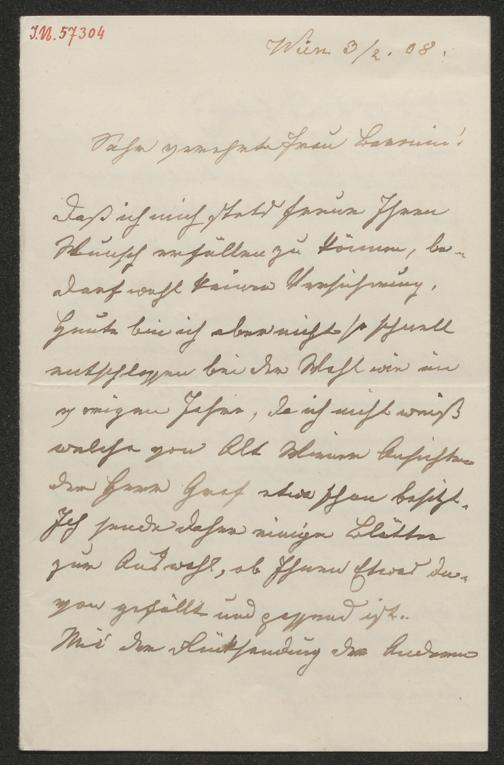 I.N. 57304
Wien 3/2. 08.
Sehr verehrte Frau Baronin!
Daß ich mich stets freue Ihren
Wunsch erfüllen zu können, be-
darf wohl keiner Versicherung.
Heute bin ich aber nicht so schnell
entschlossen bei der Wahl wie im
vorigen Jahre, da ich nicht weiß
welche von Alt Wiener Ansichten
der Herr Graf etwa schon besitzt.
Ich sende daher einige Blätter
zur Auswahl, ob Ihnen Etwas da-
von gefällt und passend ist.
Mit der Rücksendung der Anderen